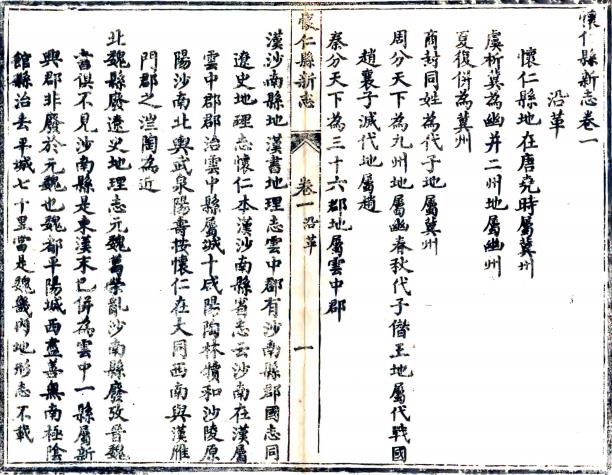 懷仁縣新志卷一
沿革
懷仁縣地在唐堯時屬冀州
虞析冀為幽并二州地屬幽州
夏復併為冀州
商封同姓為代子地屬冀州
周分天下為九州地屬幽春秋代子僭王地屬代戰國
趙襄子滅代地屬趙
秦分天下為三十六郡地屬雲中郡
懷仁縣新志
卷一 沿革
一
漢沙南縣地 漢書地理志雲中郡有沙南縣郡國志同
遼史地理志懷仁本漢沙南縣省志云沙南在漢屬
雲中郡郡治雲中縣屬城十咸陽陶林犢和沙陵原
陽沙南北輿武泉陽壽按懷仁在大同西南與漢雁
門郡之涅陶為近
北魏縣廢遼史地理志元魏葛榮亂沙南縣廢攷晉魏
書俱不見沙南縣是東漢末已併為雲中一縣屬新
興郡非廢於元魏也魏都平陽城西盡善無南極陰
館縣治去平城七十里當是魏畿內地形志不載